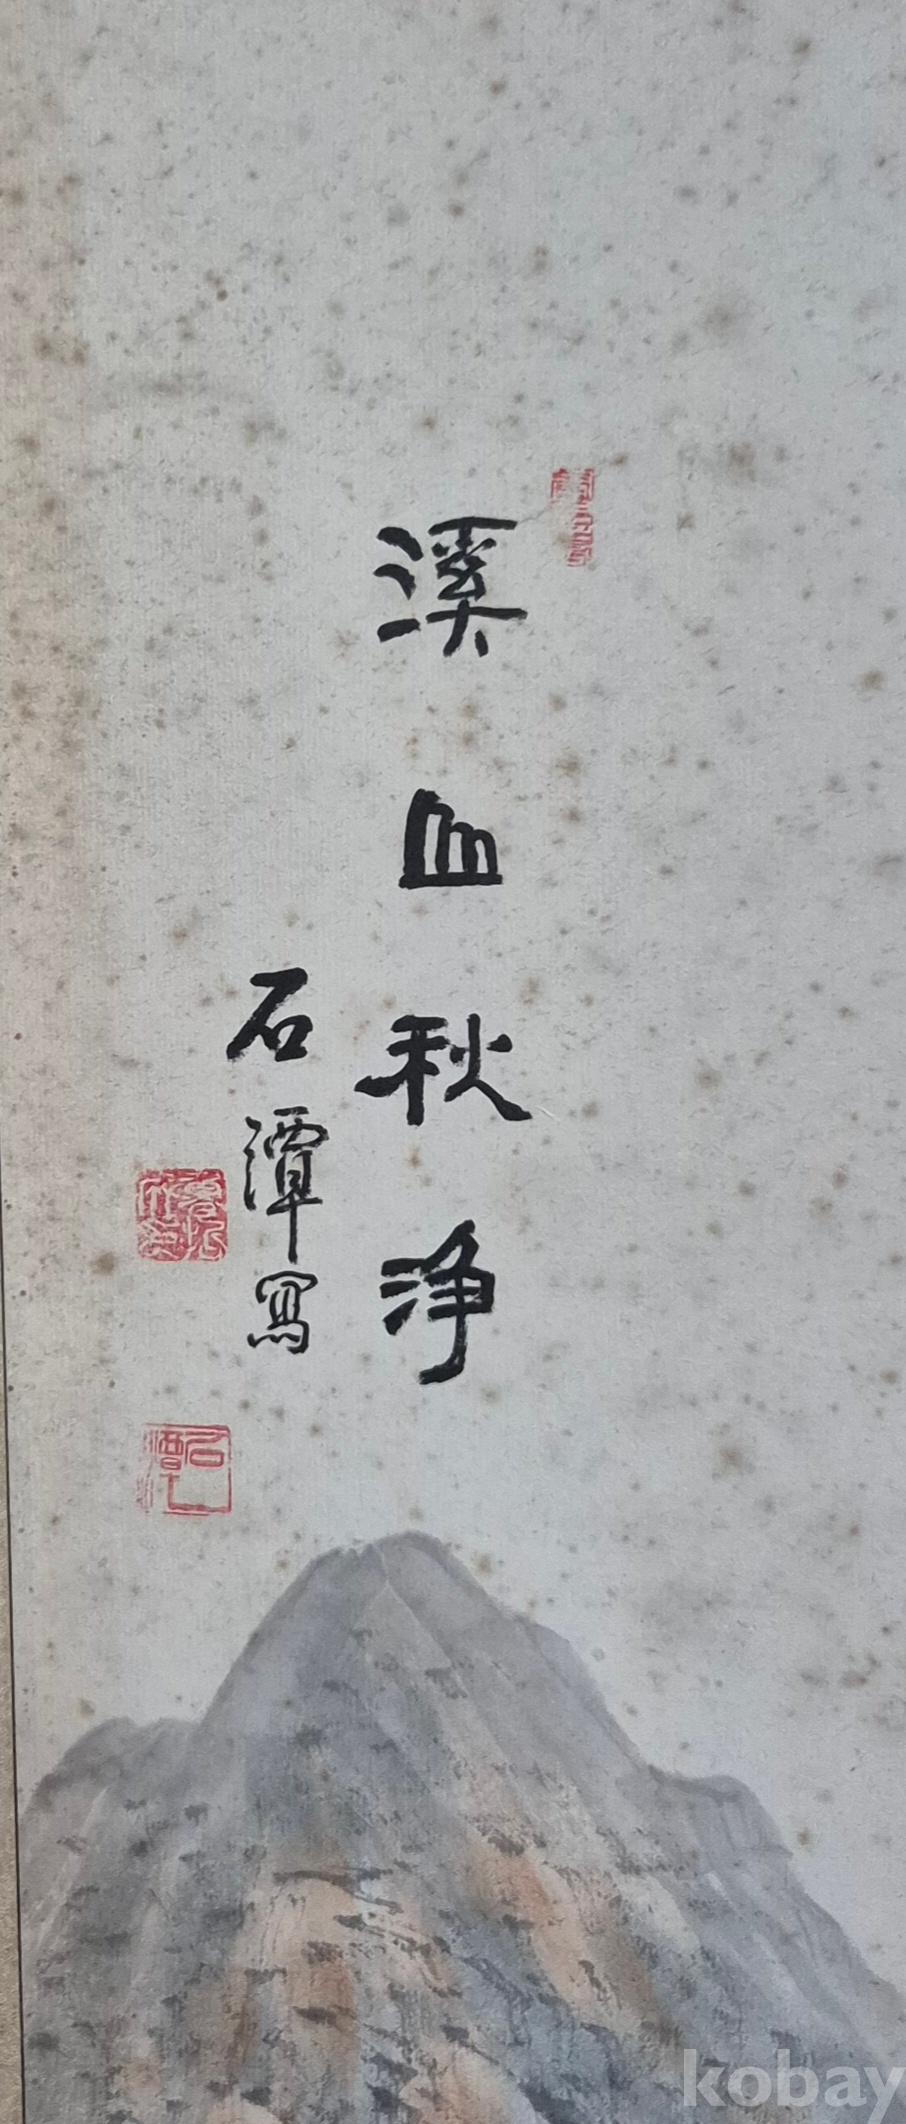 溪山秋净
石潭寫
石潭
kobay